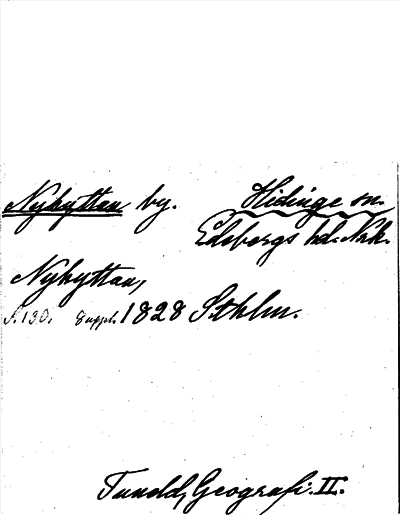 Nyhyttan by. Hidinge sn.
Edsbergs hd. Nrk.
Nyhyttan,
S. 130. Suppl. 1828 Sthlm.
Tuneld, Geografi. II.